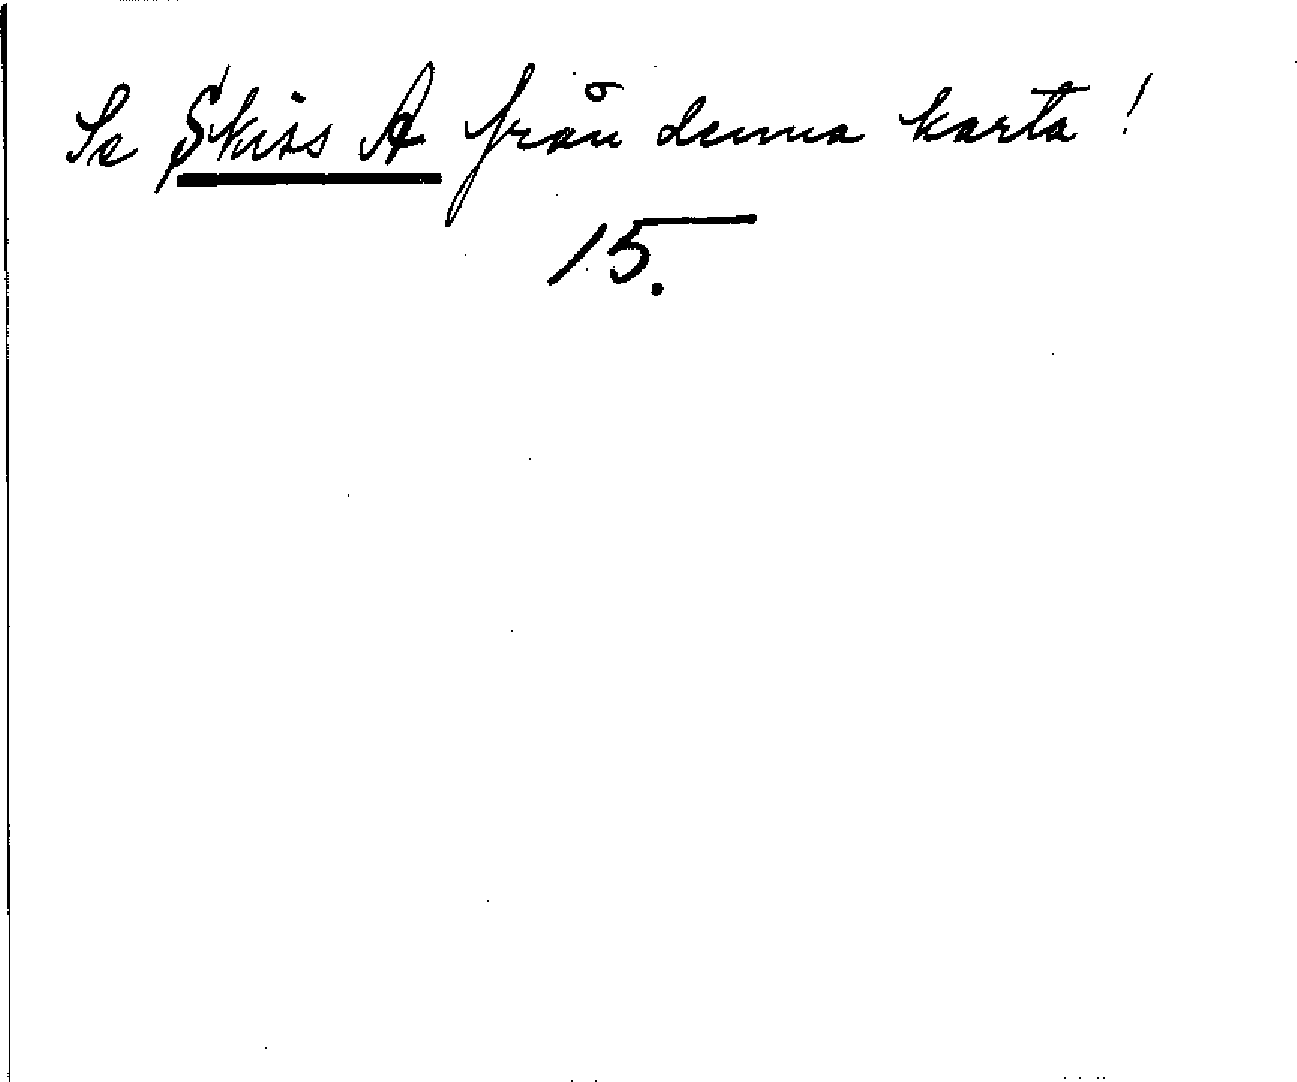 Se Skiss A från denna karta!
15.